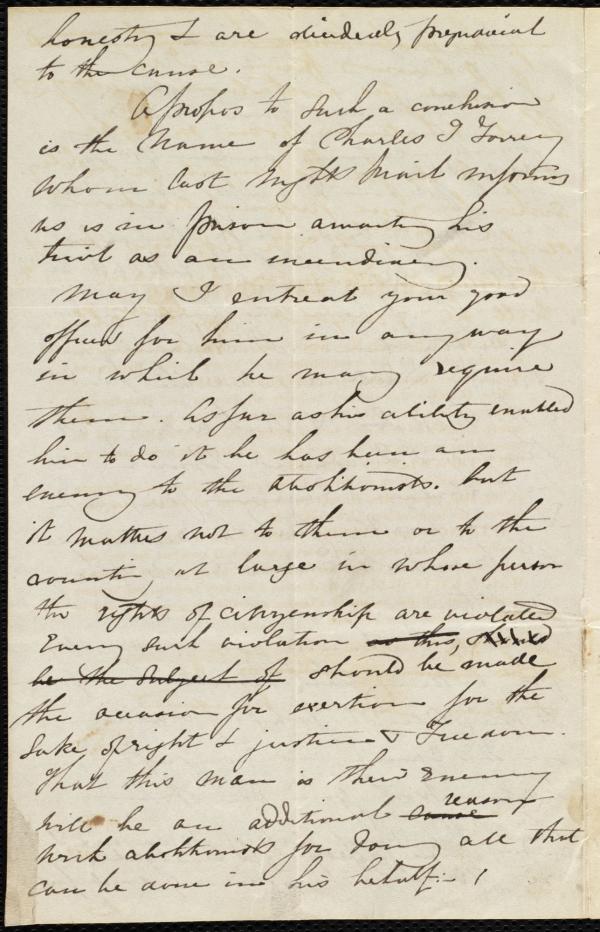 honesty & are decidedly prejudicial
to the cause.
Apropos to such a conclusion
is the name of Charles T Torrey
whom last nights Mail informs
us is in prison awaiting his
trial as an incendiary.
May I entreat your good
offices for him in any way
in which he may require
them. As far as his ability enabled
him to do it he has been an
enemy to the Abolitionists. but
it matters not to them or to the
country, at large in whose person
the rights of citizenship are violated
Every such violation or this, should
be the subject of should be made
the occasion for exertion for the
sake of right & justice & Freedom.
That this man is their Enemy
will be an additional cause reason
with abolitionists for doing all that
can be done in his behalf. !